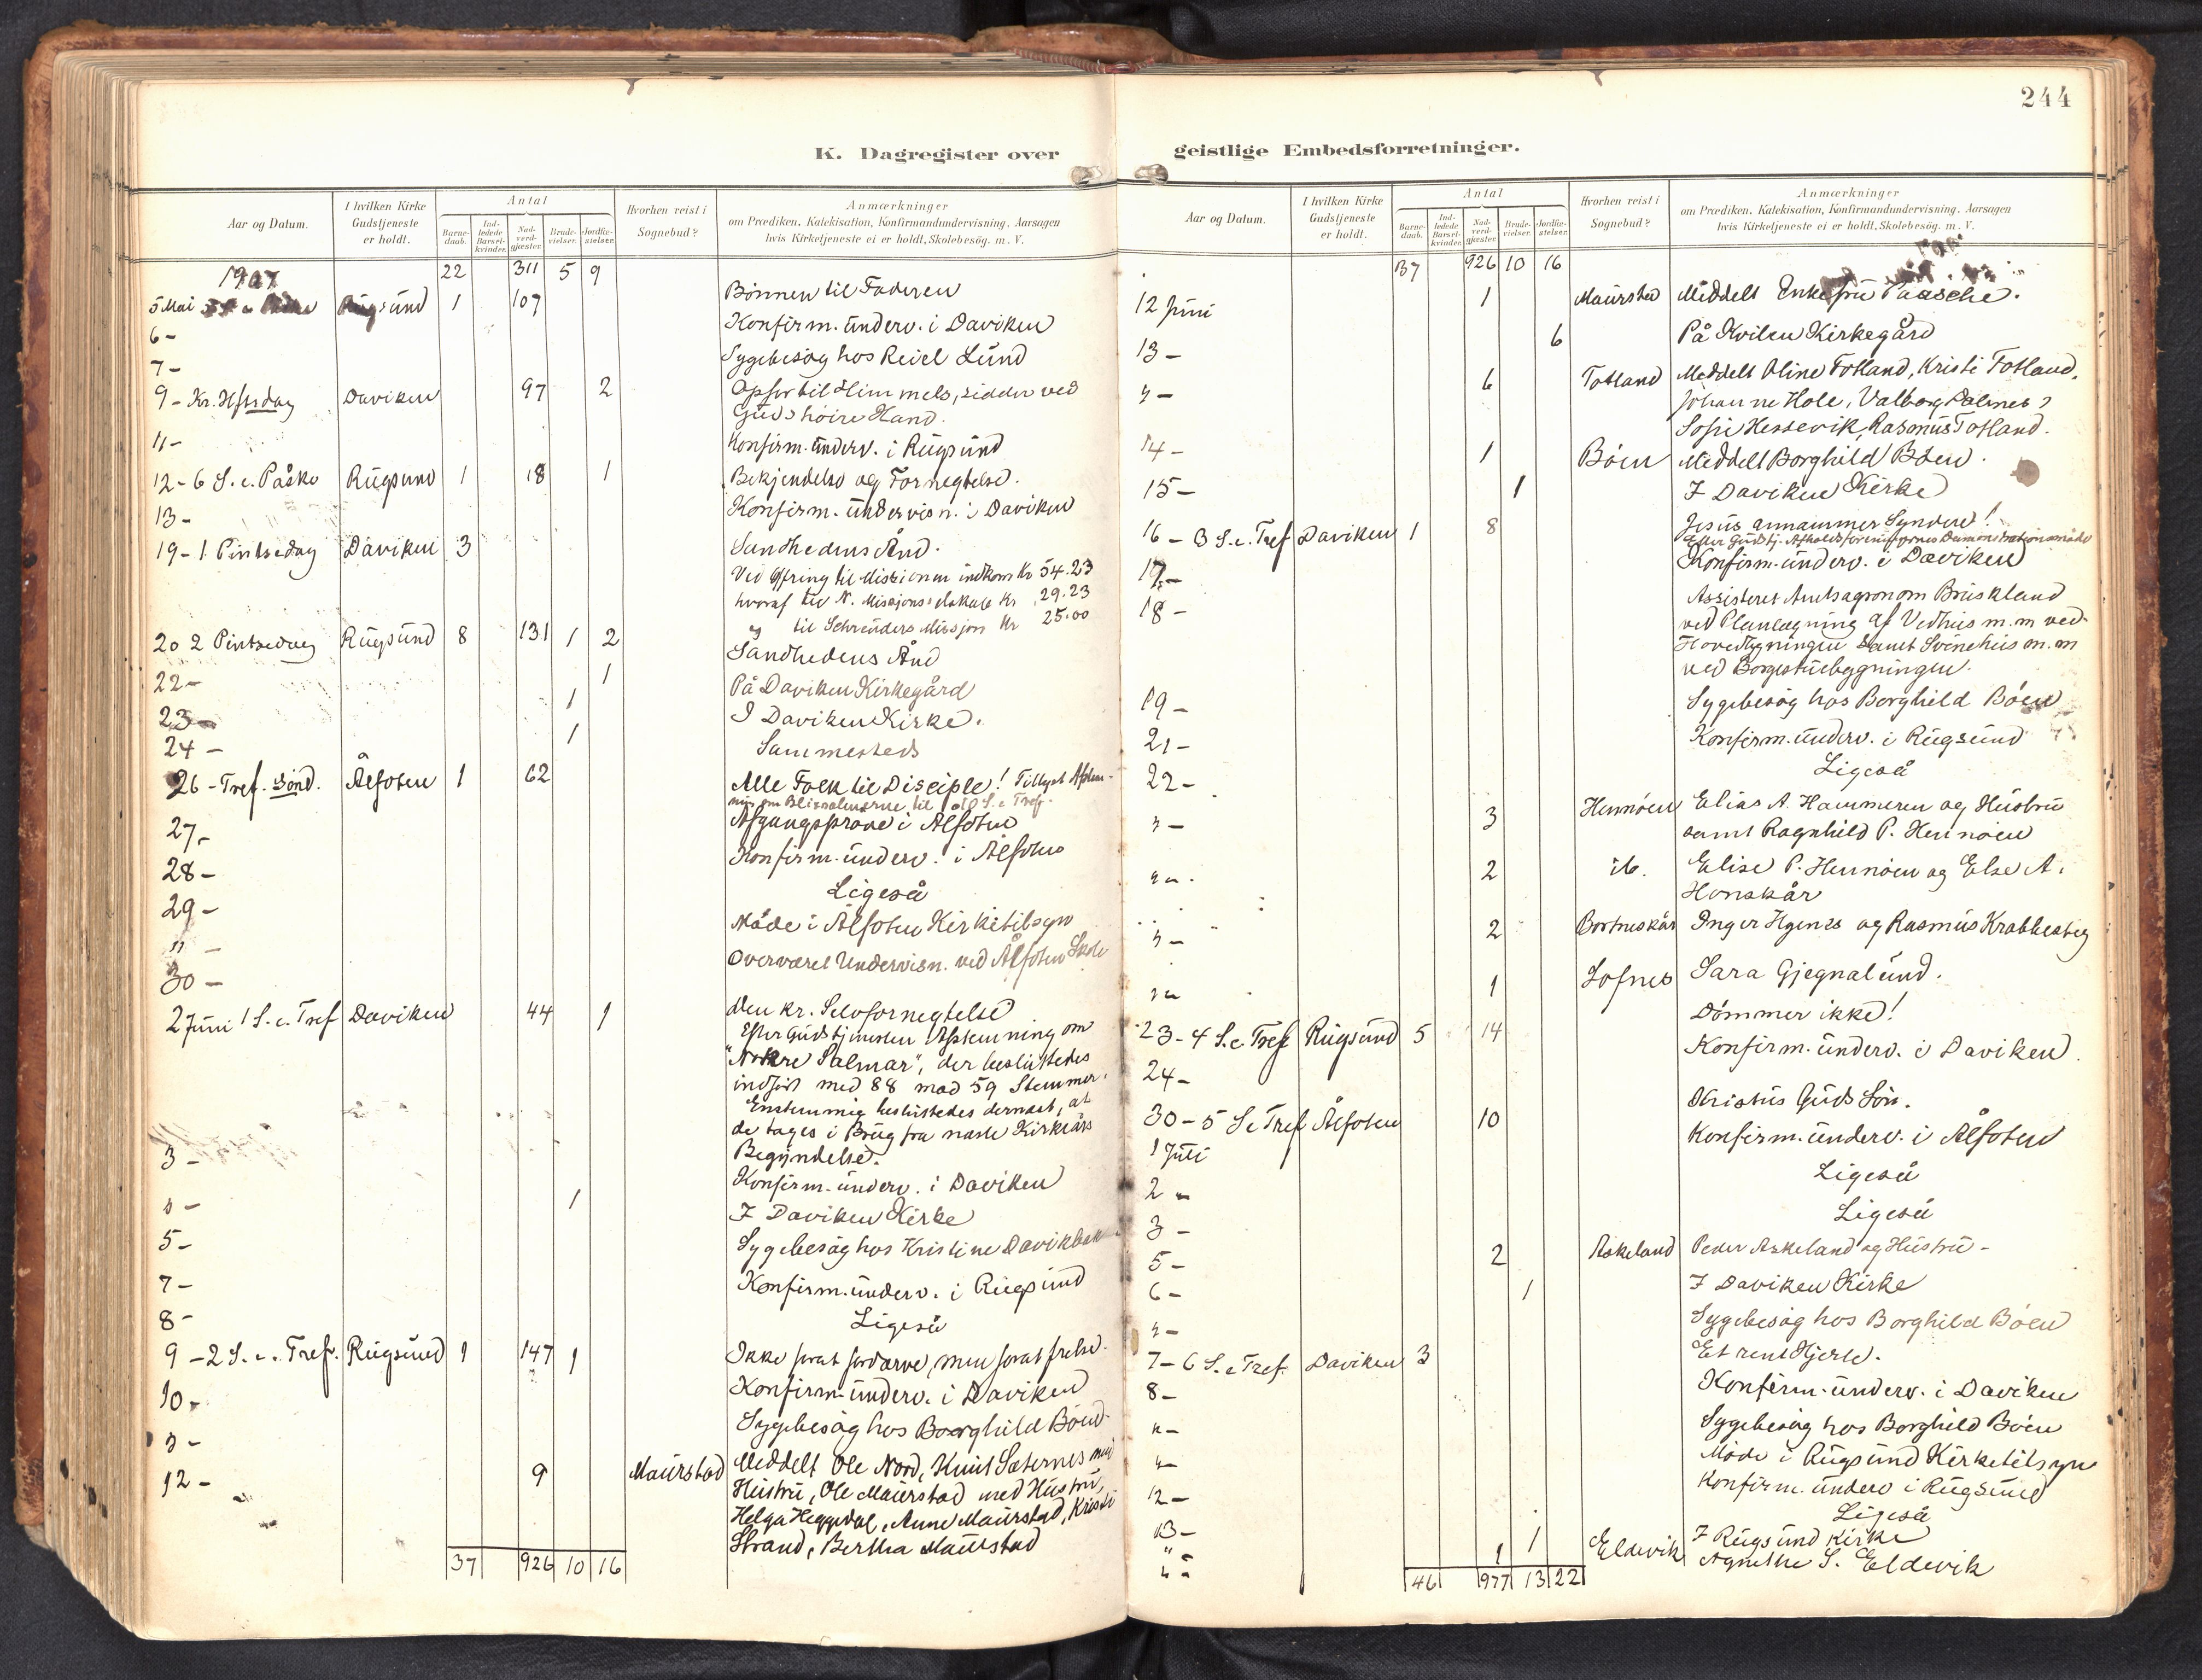 244
K. Dagregister over
geistlige Embedsforretninger.
Aar og Datum.
I hvilken Kirke Gudstjeneste er holdt.
Antal
Barne-daab.
Ind-ledede Barsel-kvinder.
Nad-verd-gjæster.
Brude-vielser.
Jordfæ-stelser.
Hvorhen reist i Sognebud?
Anmærkninger
om Prædiken, Katekisation, Konfirmandundervisning. Aarsagen
hvis Kirketjeneste ei er holdt, Skolebesøg. m. V.
1907 22 311 5 9
5 Mai Rugsund 1 107 Bønnen til Faderen
6 - Konfirm. underv. i Daviken
7 - Sygebesøg hos Reiel Lund
9 - Kr. Hfsdag Daviken 97 2 Opfor til Himmels, sidder ved
Guds høire Haand.
11 - Konfirm. underv. i Rugsund
12 - 6 S. e. Påske Rugsund 1 18 1 Bekjendelse og Fornegtelse.
13 - Konfirm. undervisn. i Daviken
19 - 1 Pintsedag Daviken 3 Sandhedens Ånd.
Ved Ofring til Missionen indkom Kr 54.23
hvoraf til N. Missjonsselskab Kr 29.23
og til Schreuders Missjon Kr 25.00
20 2 Pintsedag Rugsund 8 131 1 2 Sandhedens Ånd
22 - 1 På Daviken Kirkegård
23 - 1 I Daviken Kirke.
24 - 1 Sammesteds
26 - Tref. Sønd. Ålfoten 1 62 Alle Folk til Disciple! Tillyst Afstem-
ning om Blixsalmerne til 1ste S. e Tref.
27 - Afgangsprøve i Ålfoten
28 - Konfirm. underv. i Ålfoten
29 - Ligeså
" - Møde i Ålfoten Kirketilsyn
30 - Overværet Undervisn. ved Ålfoten Skole
2 Juni 1 S. e. Tref Daviken 44 1 Den kr. Selvfornegtelse
Efter Gudstjenesten Afstemning om
"Nokre Salmar", der besluttedes
indført med 88 mod 59 Stemmer.
Enstemmig besluttedes dernæst, at
de tages i Brug fra næste Kirkeårs
Begyndelse.
3 - Konfirm. underv. i Daviken
" - 1 I Daviken Kirke
5 - Sygebesøg hos Kristine
7 - Konfirm. underv. i Rugsund
8 - Ligeså
9 - 2 S. e. Tref. Rugsund 1 147 1 Ikke forat fordærve, men forat frelse.
10 - Konfirm. underv. i Daviken
" - Sygebesøg hos Borghild Bøen
12 - 9 Maurstad Meddelt Ole Nord, Knut Sæternes med
Hustru, Ole Maurstad med Hustru,
Helga Heggedal, Anne Maurstad, Kristi
Strand, Bertha Maurstad
37 926 10 16
Aar og Datum.
I hvilken Kirke Gudstjeneste er holdt.
Antal
Barne-daab.
Ind-ledede Barsel-kvinder.
Nad-verd-gjæster.
Brude-vielser.
Jordfæ-stelser.
Hvorhen reist i Sognebud?
Anmærkninger
om Prædiken, Katekisation, Konfirmandundervisning. Aarsagen
hvis Kirketjeneste ei er holdt, Skolebesøg. m. V.
37 926 10 16
12 Juni 1 Maurstad Meddelt Enkefru Paasche.
13 - 6 På Kirkegård
" - 6 Totland Meddelt Oline Totland, Kristi Totland,
Johanne Hole, Valborg
Sofie Hessevik, Rasmus Totland.
14 - 1 Bøen Meddelt Borghild Bøen.
15 - 1 I Daviken Kirke
16 - 3 S. e. Tref Daviken 1 8 Jesus annammer Syndere!
Efter Gudstj. Afholdsforeningernes Demonstrationsmøde
17 - Konfirm. underv. i Daviken
18 - Assisteret Amtsagronom Bruskland
ved Planlægning af Vedhus m.m ved
Hovedbygningen samt Svinehus m.m
ved Borgestuebygningen.
19 - Sygebesøg hos Borghild Bøen
21 - Konfirm. underv. i Rugsund
22 - Ligeså
" - 3 Hennøen Elias A. Hammeren og Hustru
samt Ragnhild P. Hennøen
" - 2 ib. Elise P. Hennøen og Else A.
Honskår
" - 2 Bortneskår Inger Hgenes og Rasmus Krabbestig
" - 1 Lofnes Sara Gjegnalund.
23 - 4 S. e. Tref Rugsund 5 14 Dømmer ikke!
24 - Konfirm. underv. i Daviken.
30 - 5 S e Tref Ålfoten 10 Kristus Guds Søn.
1 Juli Konfirm. underv. i Ålfoten
2 - Ligeså
3 - Ligeså
5 - 2 Askeland Peder Askeland og Hustru -
6 - 1 I Daviken Kirke
" - Sygebesøg hos Borghild Bøen
7 - 6 S. e Tref. Daviken 3 Et rent Hjerte.
8 - Konfirm. underv. i Daviken
" - Sygebesøg hos Borghild Bøen
" - Møde i Rugsund Kirketilsyn
12 - Konfirm. underv i Rugsund
13 - Ligeså
" 1 I Rugsund Kirke
" - 1 Eldevik Agnethe S. Eldevik
46 977 13 22